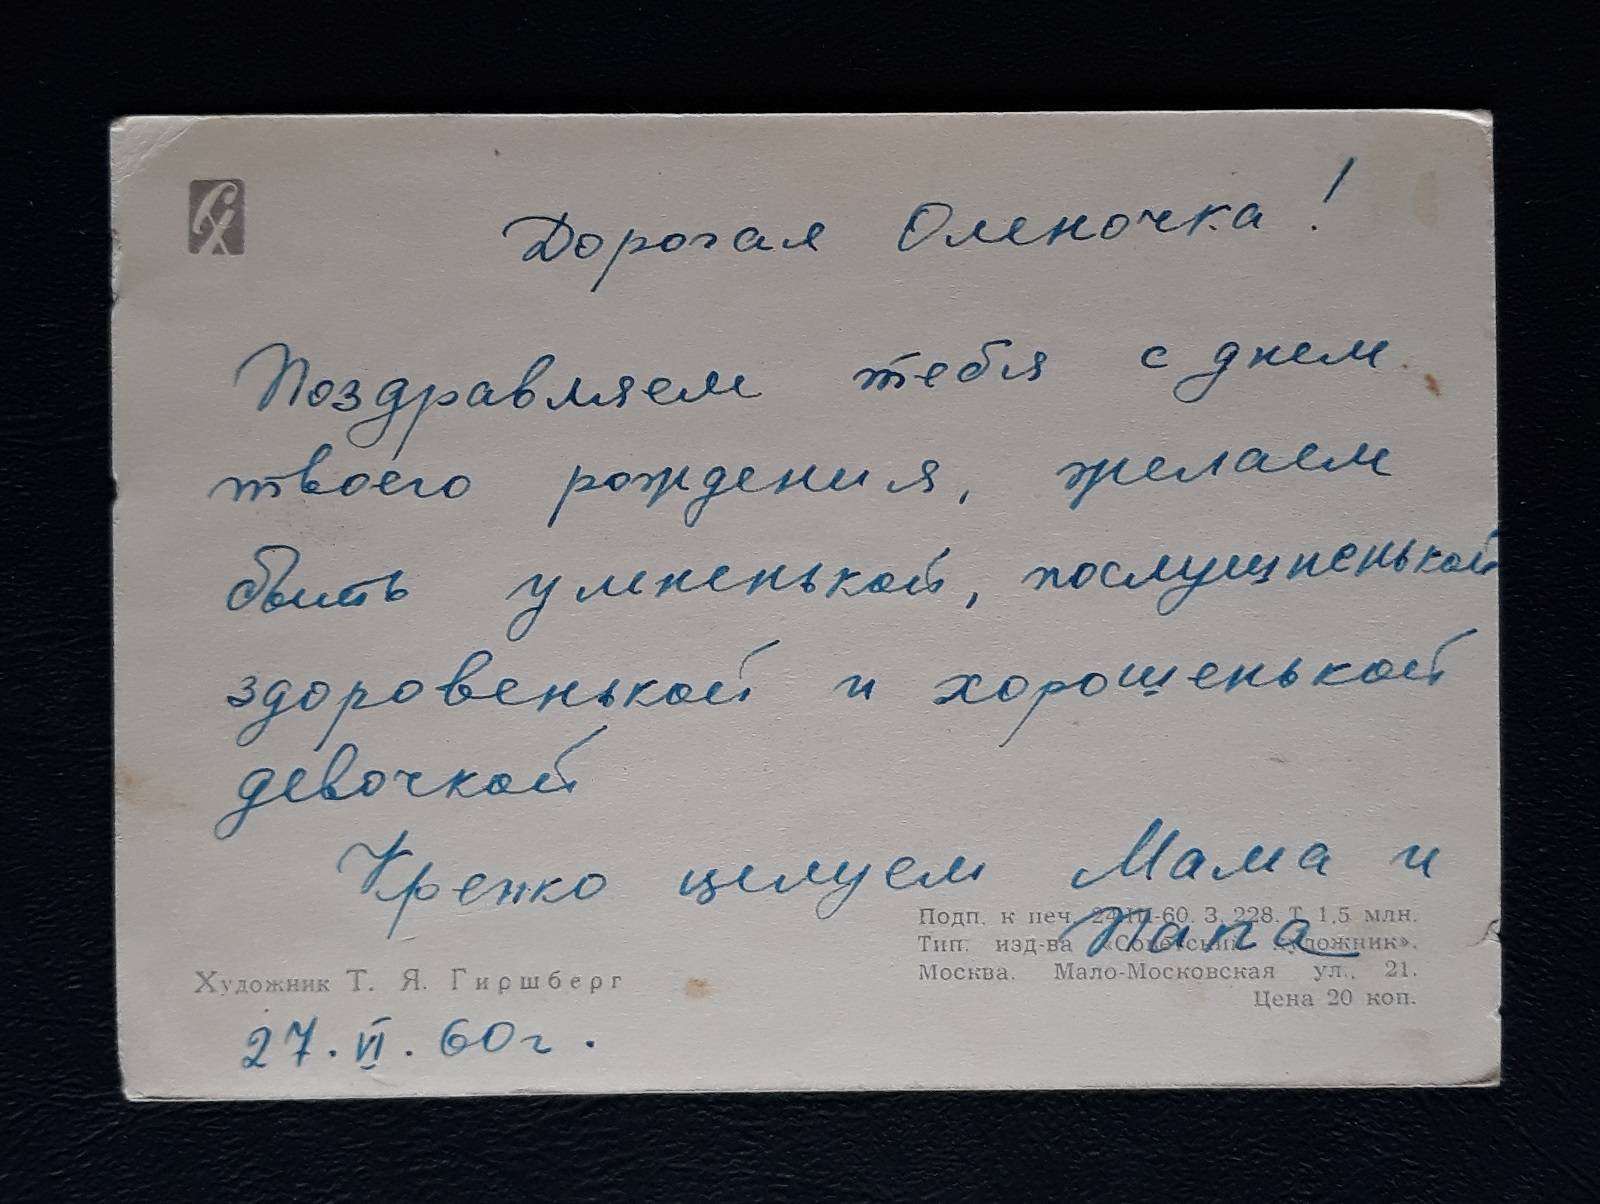 Дорогая Оленочка!
Поздравляем тебя с днем
твоего рождения, желаем
быть умненькой, послушненькой
здоровенькой и хорошенькой
девочкой
Крепко целуем Мама и
Папа
Подп. к печ. 24/III-60. З. 228. Т. 1,5 млн.
Тип. изд-ва «Советский художник».
Москва. Мало-Московская ул., 21.
Цена 20 коп.
Художник Т. Я. Гиршберг
27.VI.60г.